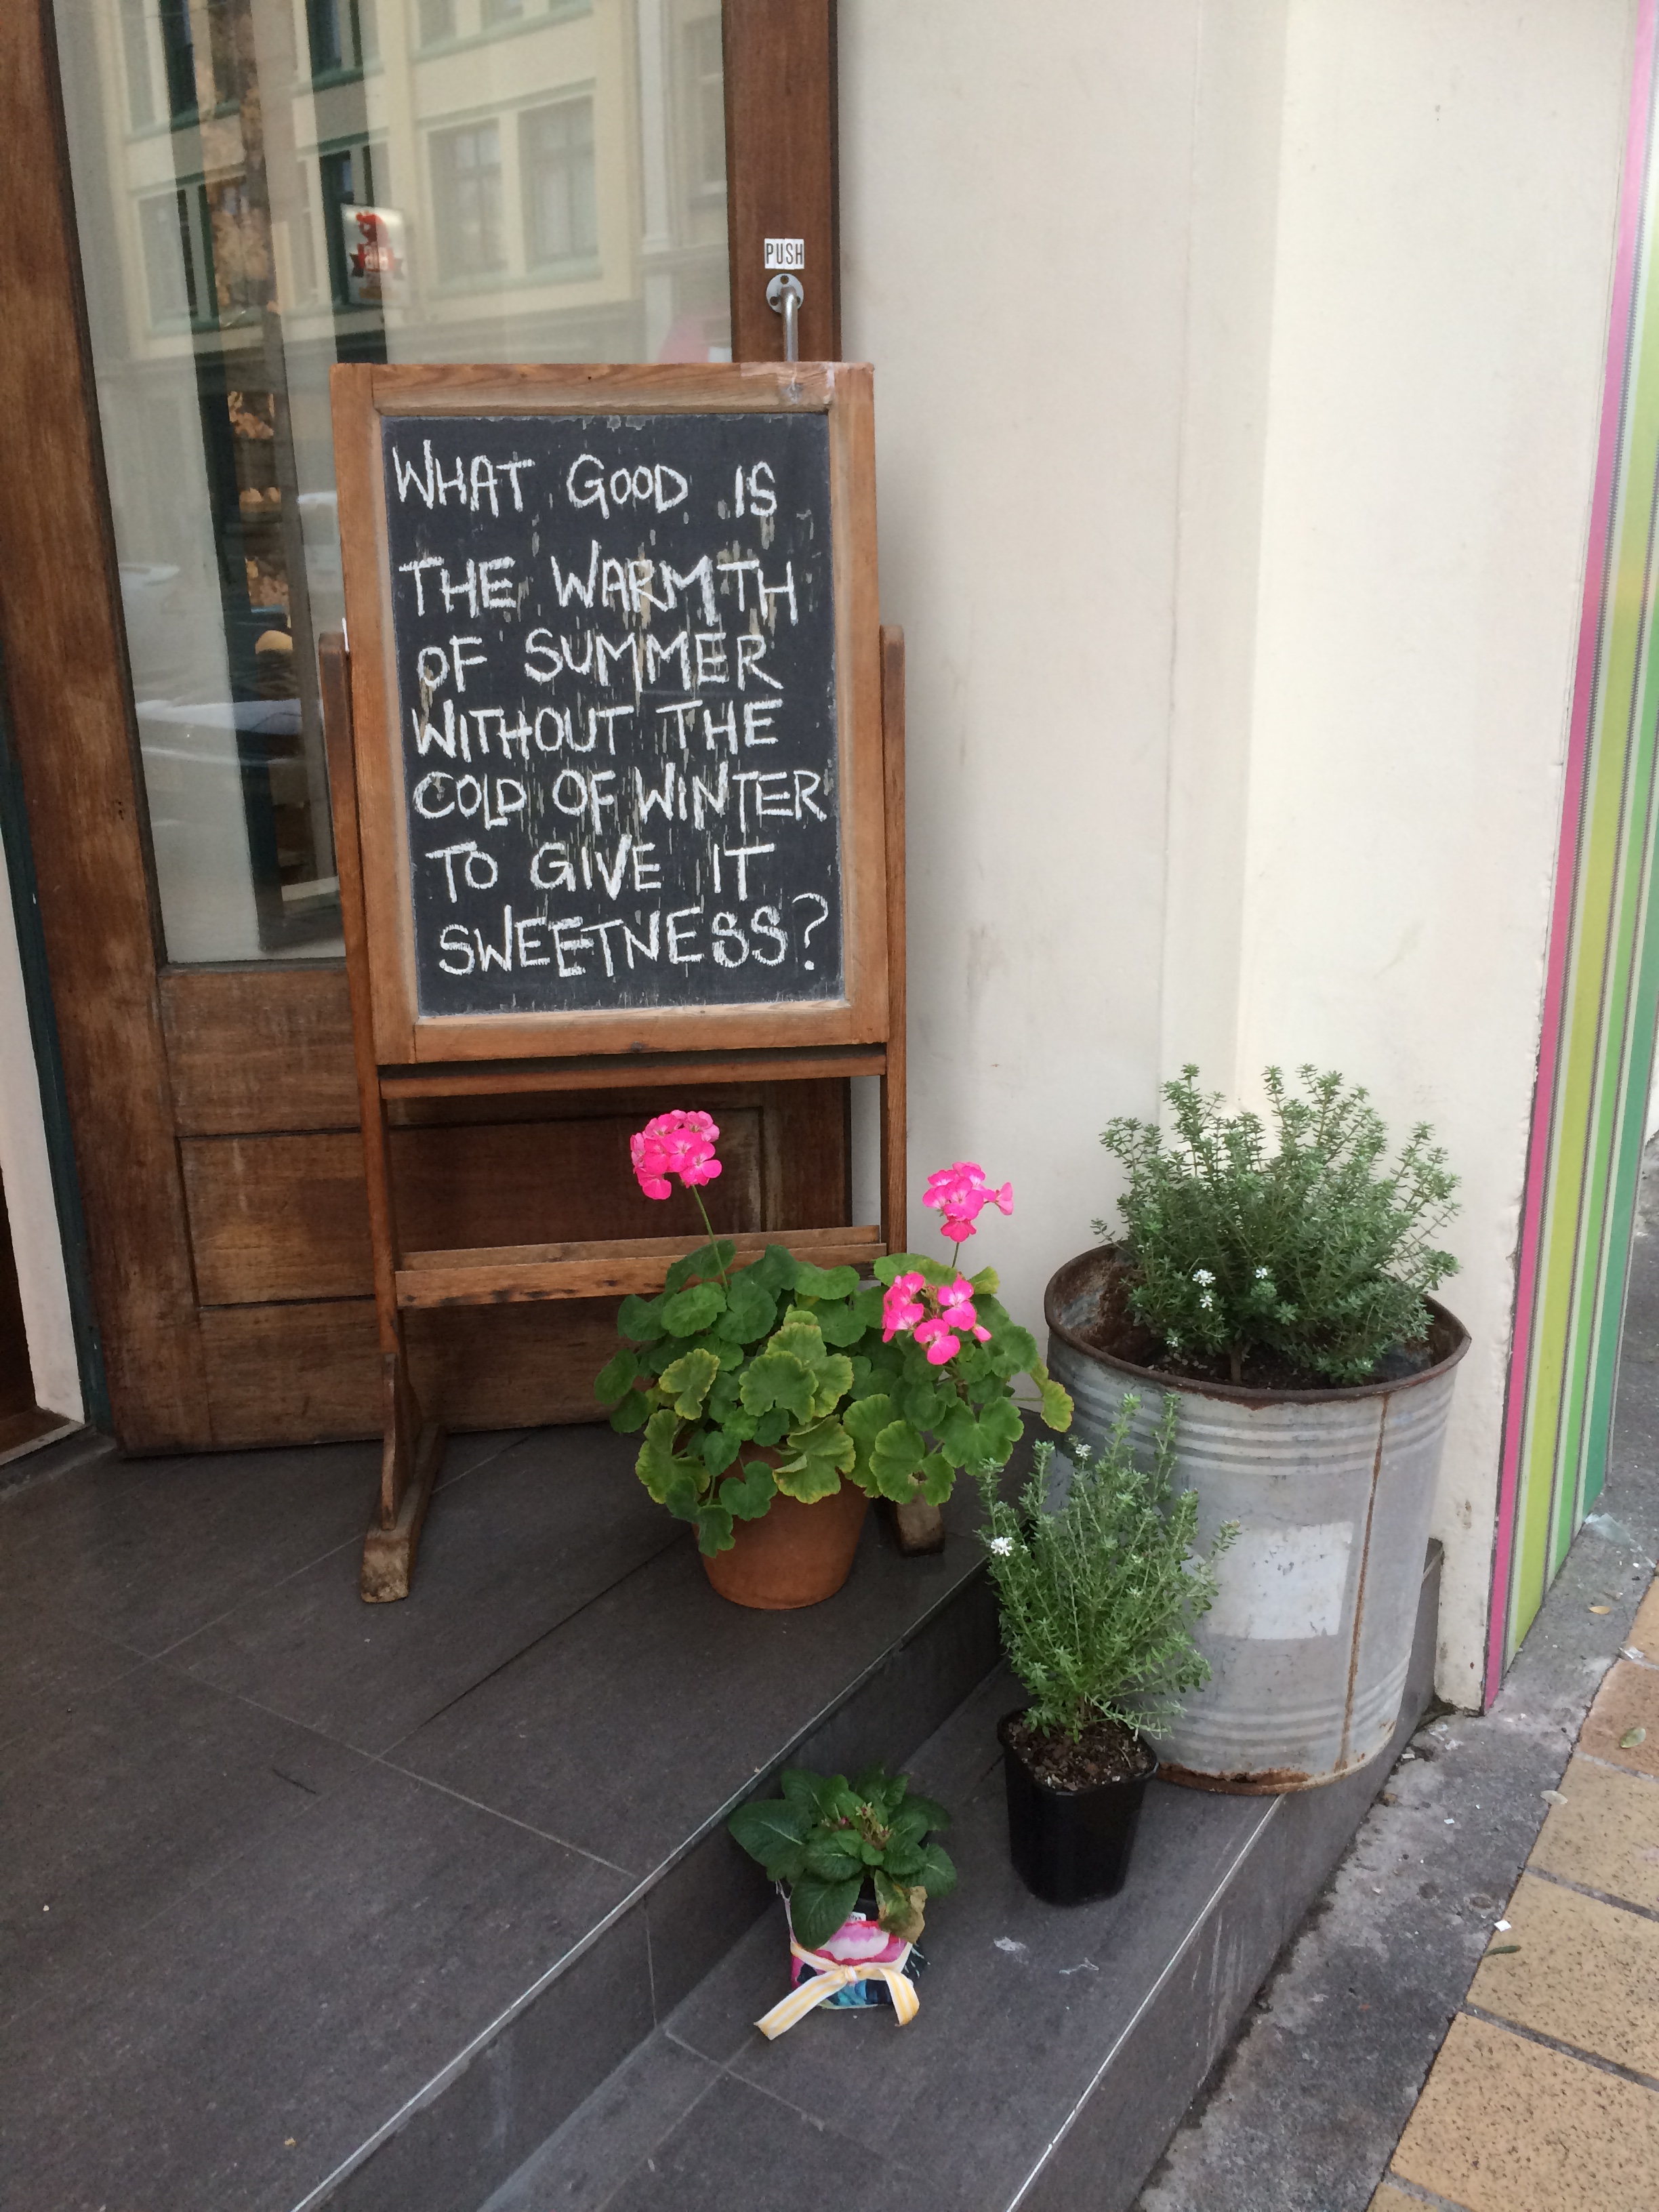 PUSH
WHAT GOOD IS
THE WARMTH
OF SUMMER
WITHOUT THE
COLD OF WINTER
TO GIVE IT
SWEETNESS?